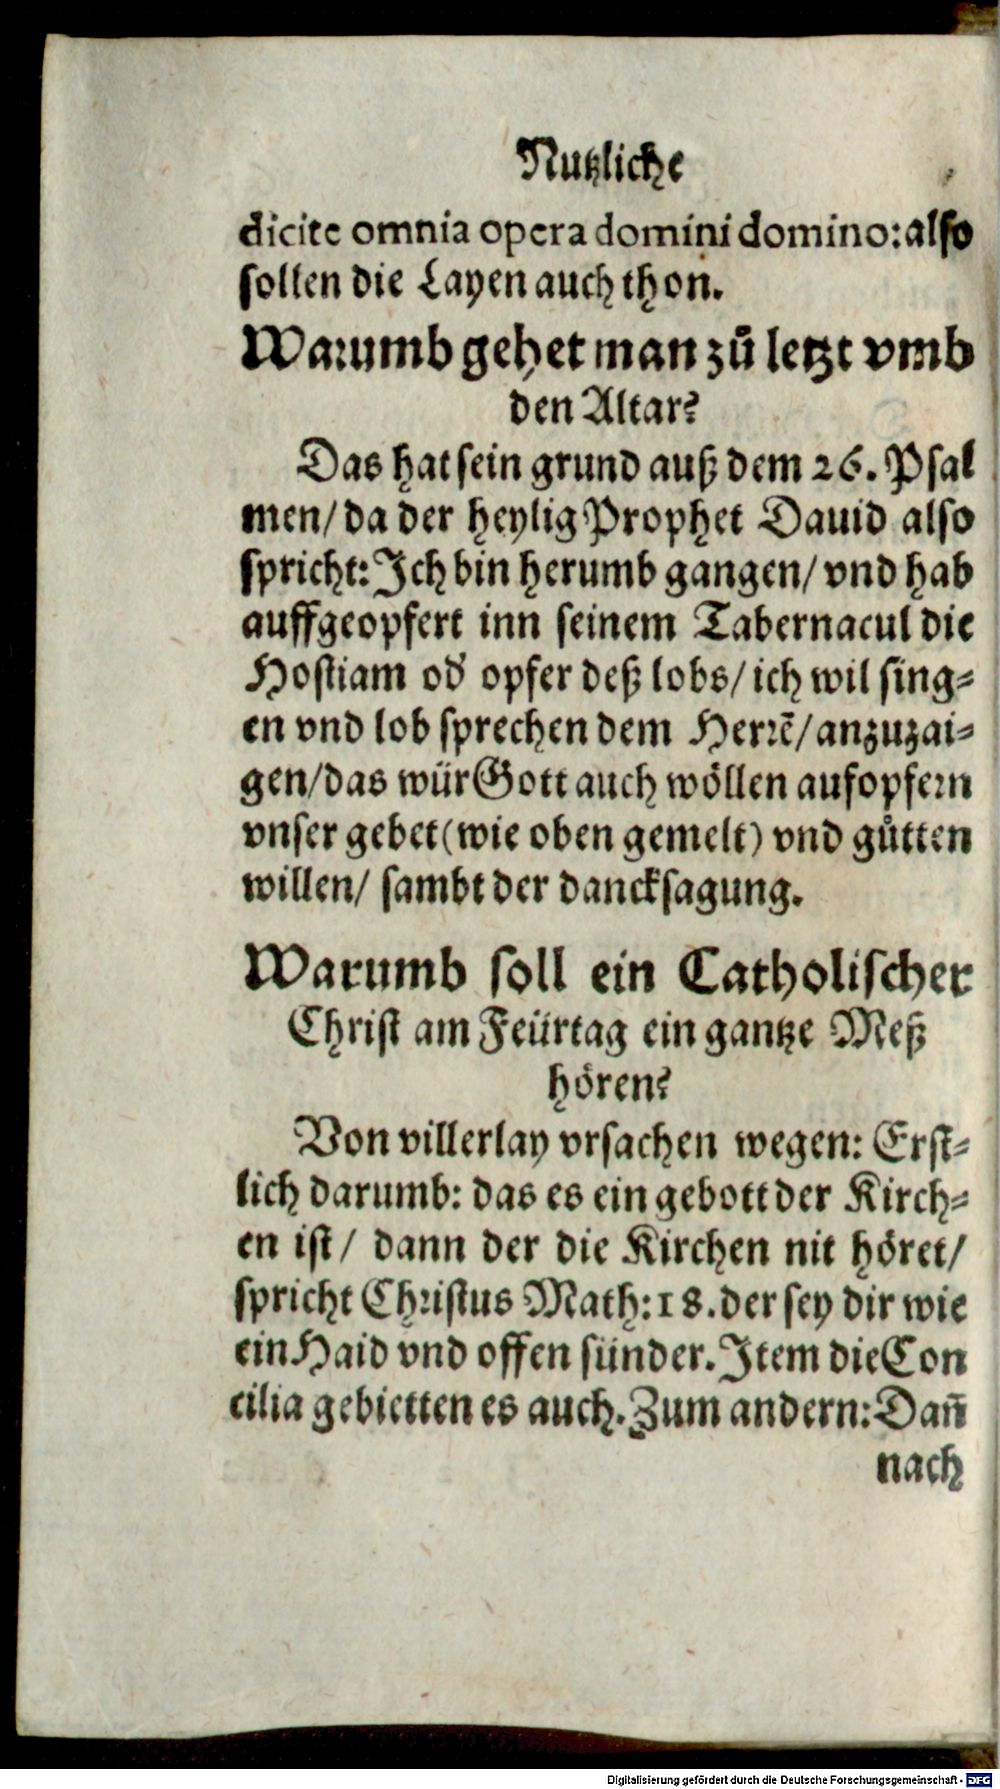 Nutzliche
dicite omnia opera domini domino: also
sollen die Layen auch thon.
Warumb gehet man zů letzt vmb
den Altar?
Das hat sein grund auß dem 26. Psal
men/ da der heylig Prophet Dauid also
spricht: Ich bin herumb gangen/ vnd hab
auffgeopfert inn seinem Tabernacul die
Hostiam od̕ opfer deß lobs/ ich wil sing⸗
en vnd lob sprechen dem Herrē/ anzuzai⸗
gen/ das wür Gott auch wöllen aufopfern
vnser gebet (wie oben gemelt) vnd gůtten
willen/ sambt der dancksagung.
Warumb soll ein Catholischer
Christ am Feürtag ein gantze Meß
hören?
Von villerlay vrsachen wegen: Erst⸗
lich darumb: das es ein gebott der Kirch⸗
en ist/ dann der die Kirchen nit höret/
spricht Christus Math: 18. der sey dir wie
ein Haid vnd offen sünder. Item die Con
cilia gebietten es auch. Zum andern: Dañ
nach
Digitalisierung gefördert durch die Deutsche Forschungsgemeinschaft - DFG